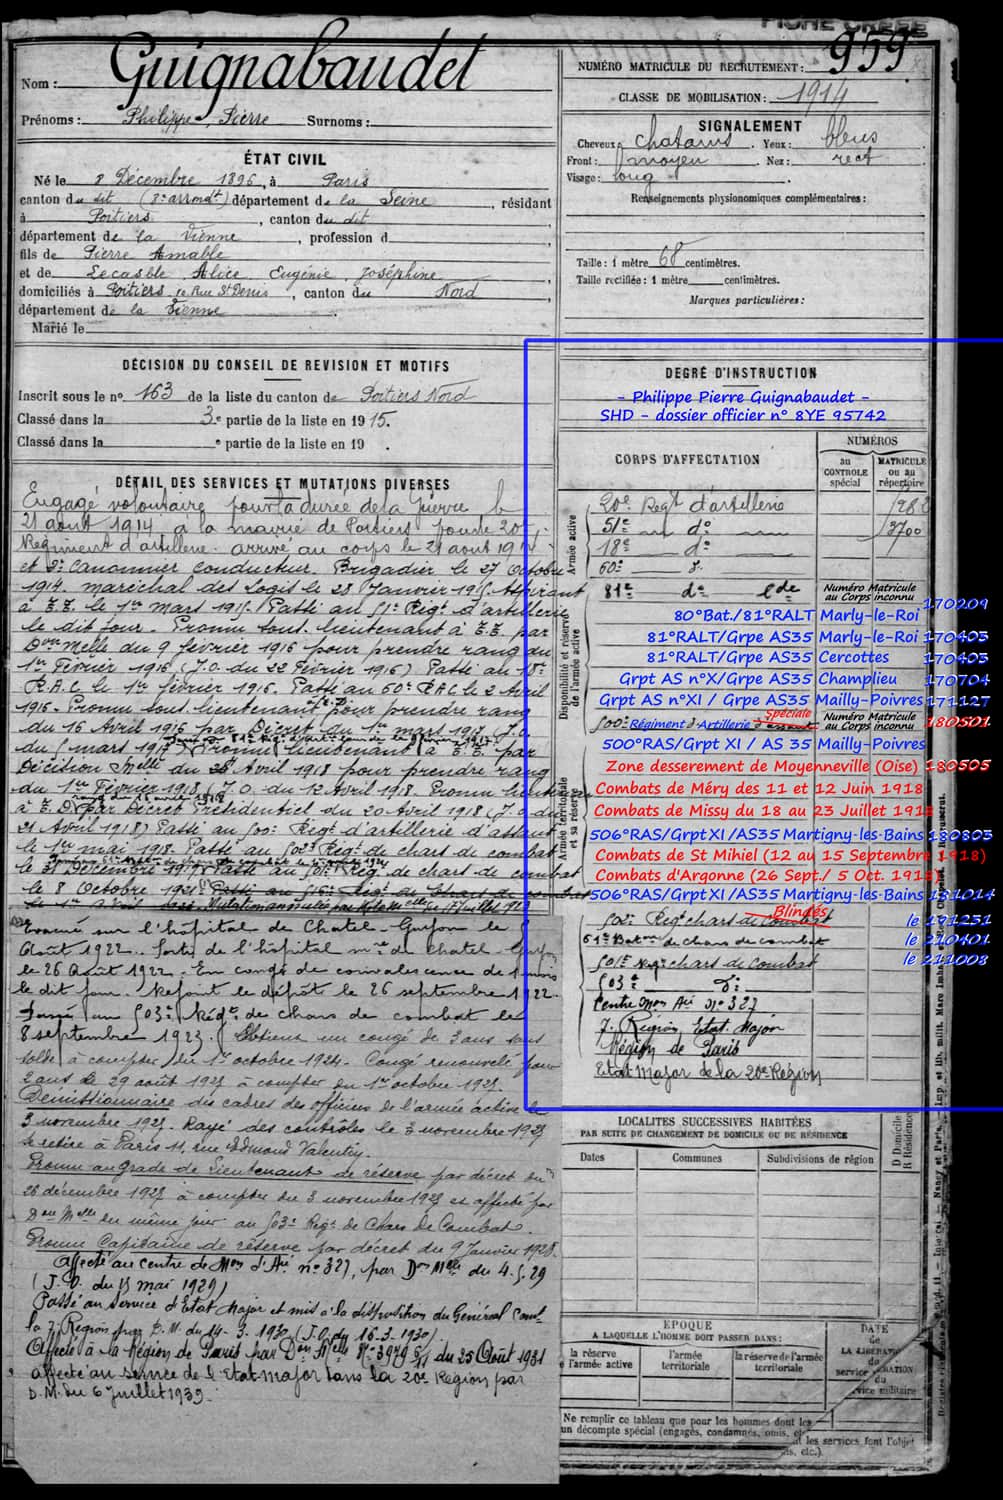 FICHE CRÉÉE
Nom : Guignabaudet
Prénoms : Philippe, Pierre Surnoms :
NUMÉRO MATRICULE DU RECRUTEMENT : 959
CLASSE DE MOBILISATION : 1914
ÉTAT CIVIL
Né le 8 Décembre 1895, à Paris
canton du dit (8e arrondt) département de la Seine, résidant
à Poitiers, canton du dit
département de la Vienne, profession d
fils de Pierre Amable
et de Lecasble Alice Eugénie Joséphine
domiciliés à Poitiers Rue St Denis, canton du Nord
département de la Vienne
Marié le
SIGNALEMENT
Cheveux chatains. Yeux : bleus
Front : moyen Nez : rect
Visage : long
Renseignements physionomiques complémentaires :
Taille : 1 mètre 68 centimètres.
Taille rectifiée : 1 mètre centimètres.
Marques particulières :
DÉCISION DU CONSEIL DE REVISION ET MOTIFS
Inscrit sous le no. 163 de la liste du canton de Poitiers Nord
Classé dans la 3e partie de la liste en 1915.
Classé dans la e partie de la liste en 19 .
DÉTAIL DES SERVICES ET MUTATIONS DIVERSES
Engagé volontaire pour la durée de la guerre le
21 août 1914 à la mairie de Poitiers pour le 20e
Régiment d'artillerie. arrivé au corps le 21 août 1914
et 2e Canonnier conducteur. Brigadier le 27 Octobre
1914. maréchal des Logis le 28 Janvier 1915. Aspirant
à T.T. le 1er mars 1915. Passé au 51e Régt d'artillerie
le dit jour. Promu sous-lieutenant à T.T. par
Don Melle du 9 février 1916 pour prendre rang du
1er Février 1916 (J.O. du 22 Février 1916) Passé au 18e
R.A.C. le 1er février 1916. Passé au 60e RAC le 2 Avril
1916. Promu sous-lieutenant à T.D. pour prendre rang
du 16 Avril 1916 par Décret du mars 1917 J.O.
du 5 mars 1917 Promu lieutenant à T.T. par
Décision Melle du 28 Avril 1918 pour prendre rang
du 1er Février 1918 (J.O. du 12 Avril 1918. Promu lieutenant
à T.D. par Décret Présidentiel du 20 Avril 1918 (J.O. du
21 Avril 1918) Passé au 500e Régt d'artillerie d'assaut
le 1er mai 1918. Passé au 502e Régt de chars de combat
le 31 Décembre 1919. Passé au 501e Régt de chars de combat
le 8 Octobre 1921. Passé au 516e Régt de Chars de combat
le 1er Avril Mutation annulée par Note Melle du 17 juillet
Évacué sur l'hôpital de Chatel-Guyon le 5
Août 1922. Sorti de l'hôpital mre de Chatel Guyon
le 26 Août 1922. En congé de convalescence de 1 mois
le dit jour. Rejoint le dépôt le 26 septembre 1922.
Passé au 503e Régt de Chars de combat le
8 septembre 1923. Obtient un congé de 3 ans sans
solde à compter du 1er octobre 1924. Congé renouvelé pour
2 ans le 29 août 1925 à compter du 1er octobre 1925.
Démissionnaire des cadres des officiers de l'armée active le
3 novembre 1925. Rayé des contrôles le 3 novembre 1925
Se retire à Paris 11, rue Edmond Valentin.
Promu au grade de Lieutenant de réserve par décret du
26 décembre 1925 à compter du 3 novembre 1925 et affecté par
Don Melle du même jour au 503e Régt de Chars de Combat
Promu Capitaine de réserve par décret du 9 Janvier 1928.
Affecté au centre de Mon d'Aie no 327, par Don Melle du 4.5.29
(J.O. du 15 mai 1929)
Passé au service d'Etat Major et mis à la disposition du Général Comt
la 7e Région par D.M. du 14-3-1930 (J.O. du 16-3-1930)
Affecté à la Région de Paris par Don Melle No 3979 du 25 Août 1931
affecté au service de l'Etat-major dans la 20e Région par
D.M. du 6 juillet 1939.
DEGRÉ D'INSTRUCTION
- Philippe Pierre Guignabaudet -
SHD - dossier officier n° 8YE 95742
CORPS D'AFFECTATION
NUMÉROS
au CONTROLE spécial
MATRICULE ou au répertoire
Armée active
20e Regt d'artillerie
51e do 3700
18e do
60e do
Disponibilité et réserve de l'armée active
81e do Lde Numéro Matricule au Corps inconnu
170209
80°Bat./81°RALT Marly-le-Roi
81°RALT/Grpe AS35 Marly-le-Roi 170403
81°RALT/Grpe AS35 Cercottes 170403
Grpt AS n°X/Grpe AS35 Champlieu 170704
Grpt AS n°XI / Grpe AS35 Mailly-Poivres 171127
500e Régiment d'Artillerie Spéciale Numéro Matricule au Corps inconnu 180501
500°RAS/Grpt XI / AS 35 Mailly-Poivres
Armée territoriale et sa réserve
Zone desserement de Moyenneville (Oise) 180505
Combats de Méry des 11 et 12 Juin 1918
Combats de Missy du 18 au 23 Juillet 1918
506°RAS/Grpt XI /AS35 Martigny-les-Bains 180803
Combats de St Mihiel (12 au 15 Septembre 1918)
Combats d'Argonne (26 Sept./ 5 Oct. 1918)
506°RAS/Grpt XI /AS35 Martigny-les-Bains 181014
Blindés
502e Regt chars de combat le 191231
61e Baton de chars de combat le 210401
501e Regt chars de combat le 211008
503e do
Centre Mon Aie No 327
7e Région Etat. Major
Région de Paris
Etat Major de la 20e Région
LOCALITES SUCCESSIVES HABITÉES
PAR SUITE DE CHANGEMENT DE DOMICILE OU DE RÉSIDENCE
Dates Communes Subdivisions de région
D Domicile
R Résidence
ÉPOQUE
A LAQUELLE L'HOMME DOIT PASSER DANS :
la réserve de l'armée active
l'armée territoriale
la réserve de l'armée territoriale
DATE de LA LIBÉRATION du service militaire
Ne remplir ce tableau que pour les hommes dont les
un décompte spécial (engagés, condamnés, omis, et
les services font l'objet
is, etc.).